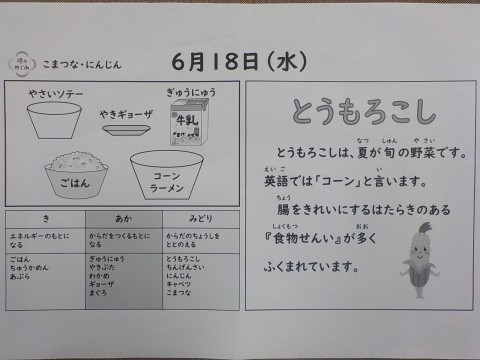 堺の
めぐみ
こまつな・にんじん
6月18日(水)
やさいソテー
やきギョーザ
ぎゅうにゅう
牛乳
ごはん
コーン
ラーメン
き
あか
みどり
エネルギーのもとに
なる
からだをつくるもとに
なる
からだのちょうしを
ととのえる
ごはん
ちゅうかめん
あぶら
ぎゅうにゅう
やきぶた
わかめ
ギョーザ
まぐろ
とうもろこし
ちんげんさい
にんじん
キャベツ
こまつな
とうもろこし
なつ しゅん やさい
とうもろこしは、夏が旬の野菜です。
えいご い
英語では「コーン」と言います。
ちょう
腸をきれいにするはたらきのある
しょくもつ おお
『食物せんい』が多く
ふくまれています。